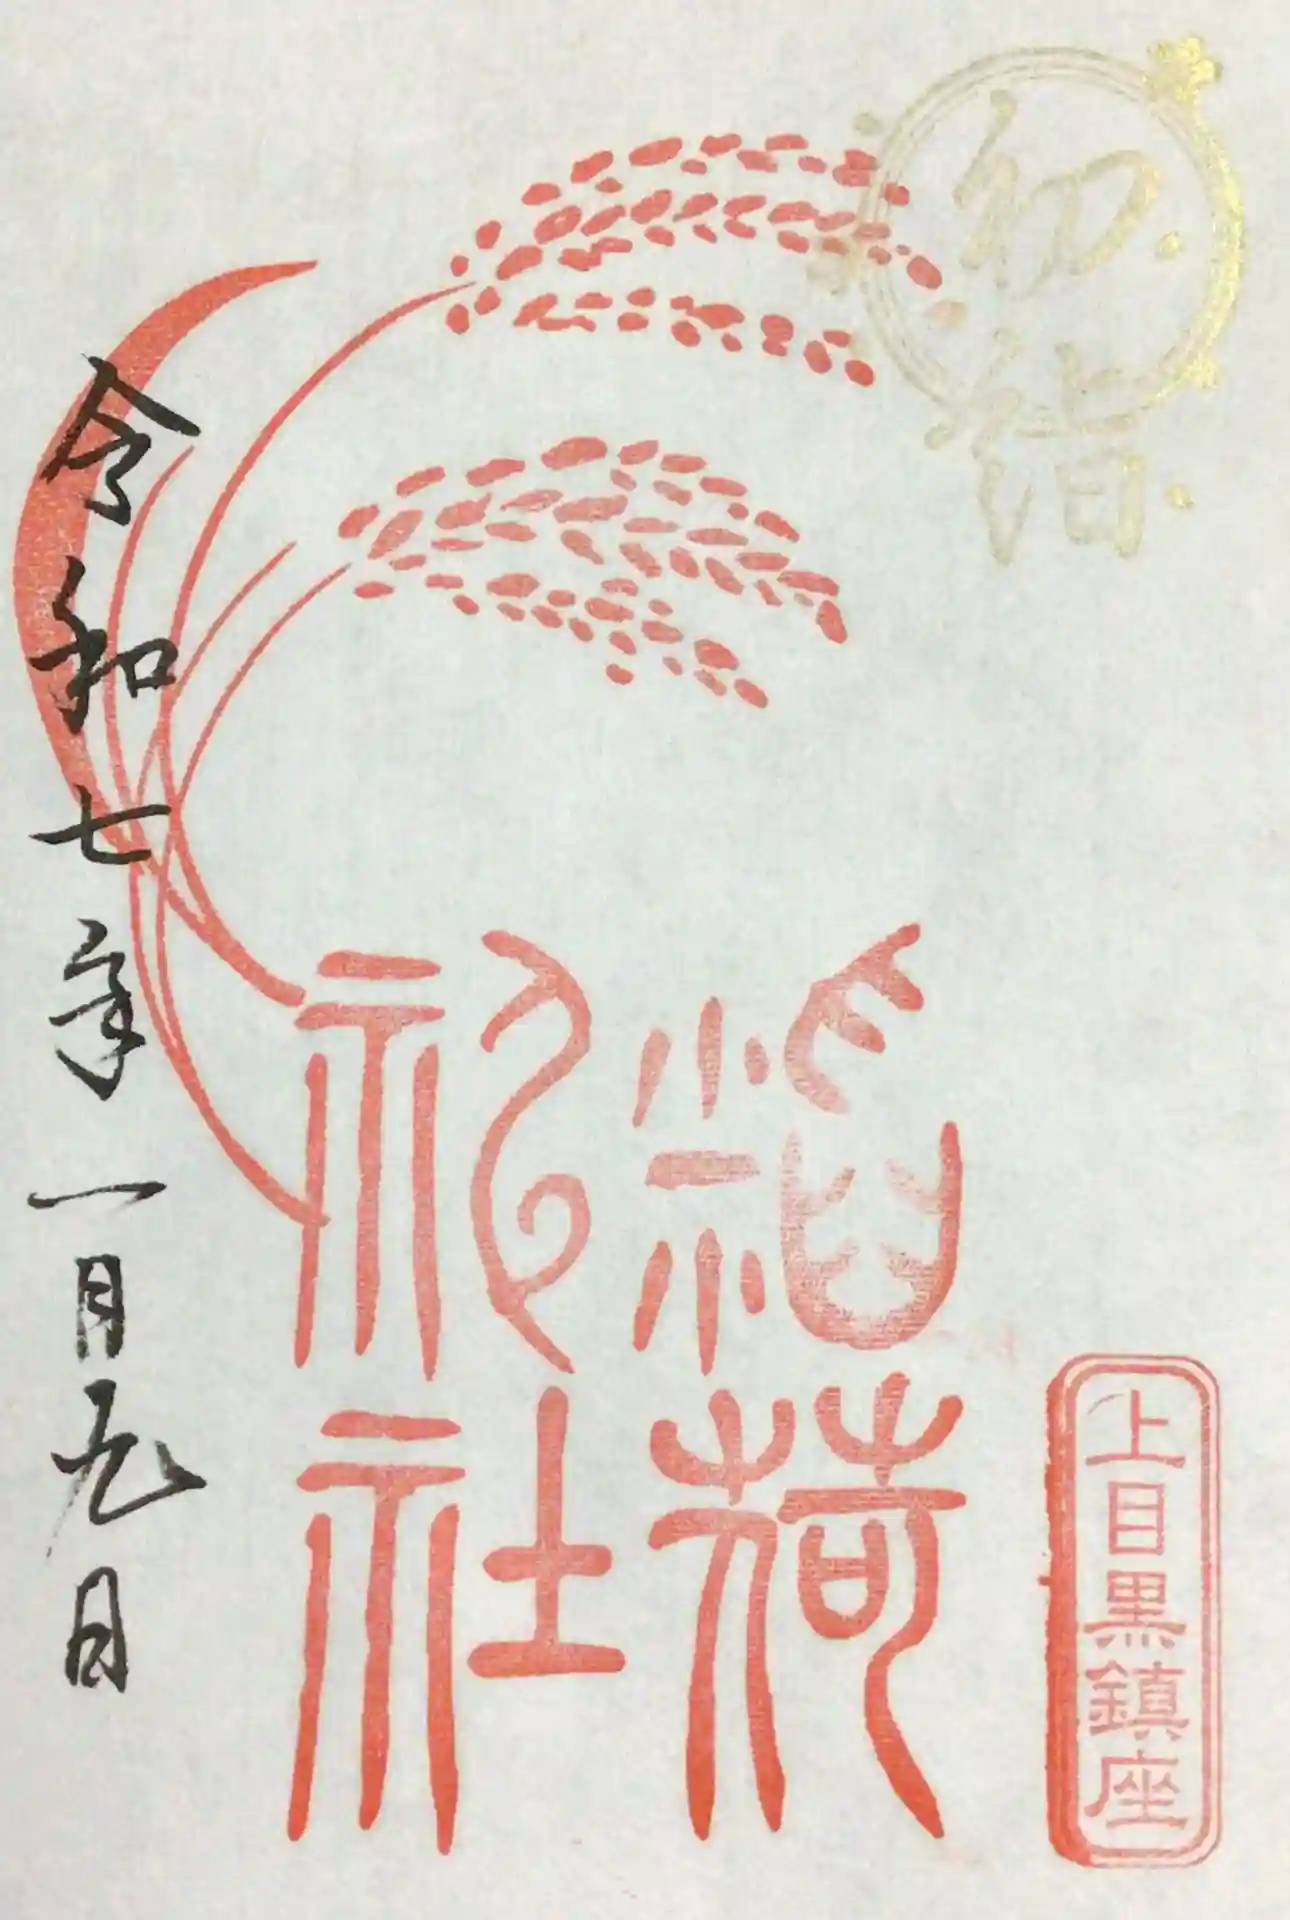 初詣
上目黒鎮座
稲荷
神社
令和七年一月九日